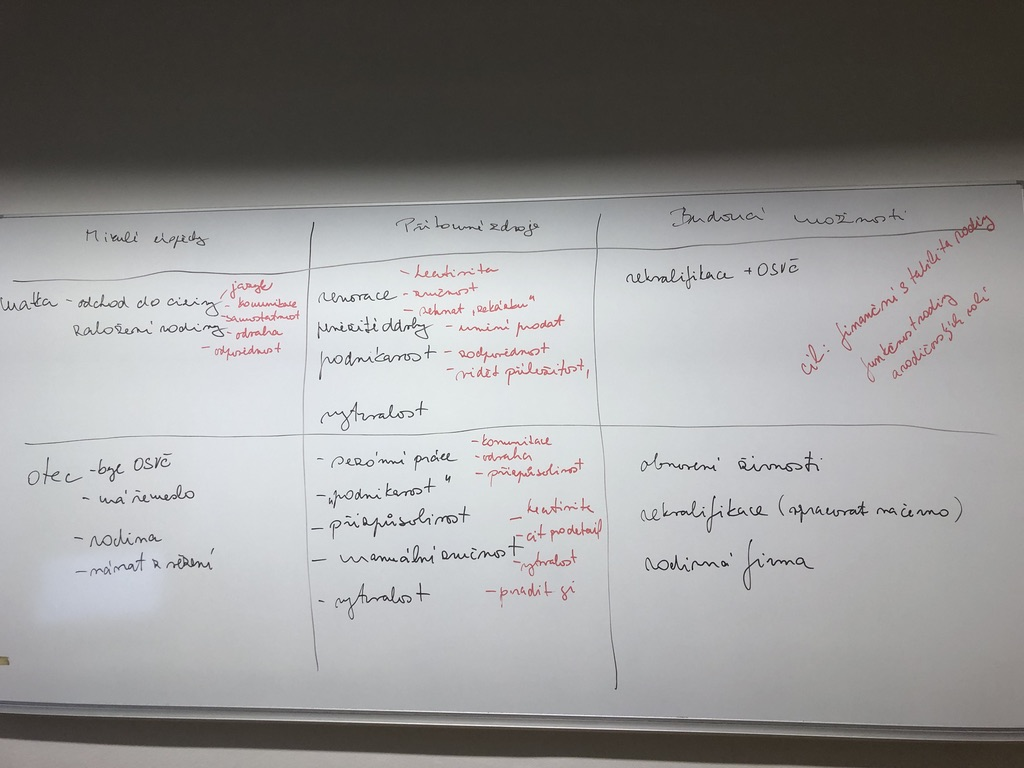 Minulé úspěchy
Přítomné zdroje
Budoucí možnosti
matka - odchod do ciziny
založení rodiny
- jazyk
- komunikace
- samostatnost
- odvaha
- odpovědnost
renovace
- kreativita
- zručnost
- sehnat „zakázku"
- umění prodat
podnikavost
- zodpovědnost
- vidět příležitost,
vytrvalost
rekvalifikace + OSVČ
cíl: finanční stabilita rodiny
funkčnost rodiny
a rodičovských rolí
otec - byl OSVČ
- má řemeslo
- rodina
- návrat z vězení
- sezónní práce
- komunikace
- odvaha
- přizpůsobivost
- „podnikavost"
- přizpůsobivost
- manuální zručnost
- kreativita
- cit pro detail
- vytrvalost
- vytrvalost
- poradit si
obnovení živnosti
rekvalifikace (zpracovat načerno)
rodinná firma